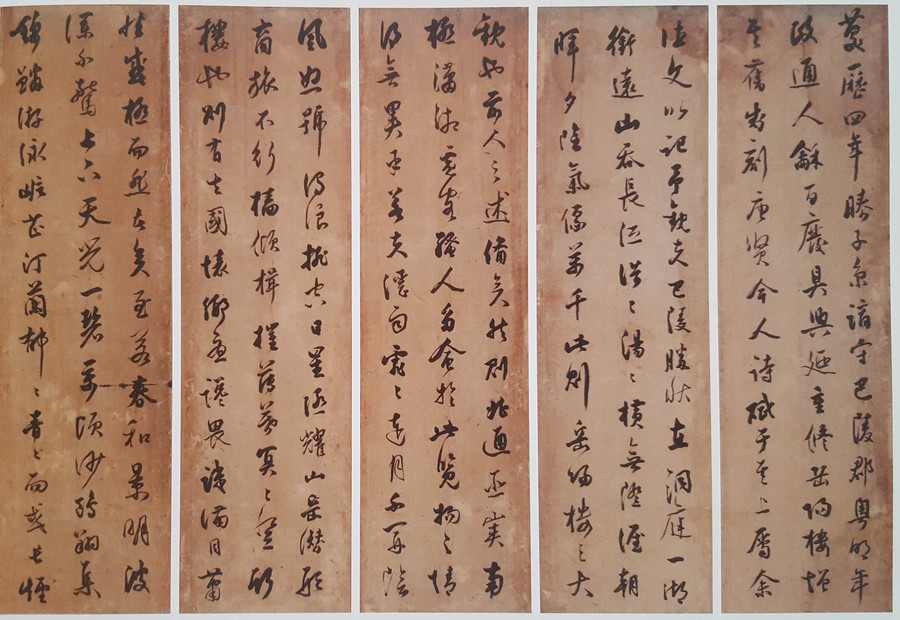 慶歷四年滕子京謫守巴陵郡粵明年
政通人龢百廢具興延重修岳陽樓增
其舊制刻唐賢今人詩賦于其上屬余
作文以記予觀夫巴陵勝狀在洞庭一湖
銜遠山吞長江浩々湯々橫無際涯朝
暉夕陰氣象萬千此則岳陽樓之大
觀也前人之述備矣然則北通巫峽南
極瀟湘遷客騷人多會於此覽物之情
得無異乎若夫霪雨霏々連月不開陰
風怒號濁浪排空日星隱耀山岳潛形
商旅不行檣傾楫摧薄暮冥々登斯
樓也則有去國懷鄉憂讒畏譏滿目蕭
然感極而悲者矣至若春和景明波
瀾不驚上下天光一碧萬頃沙鷗翔集
錦鱗游泳岸芷汀蘭郁々青々而或長煙